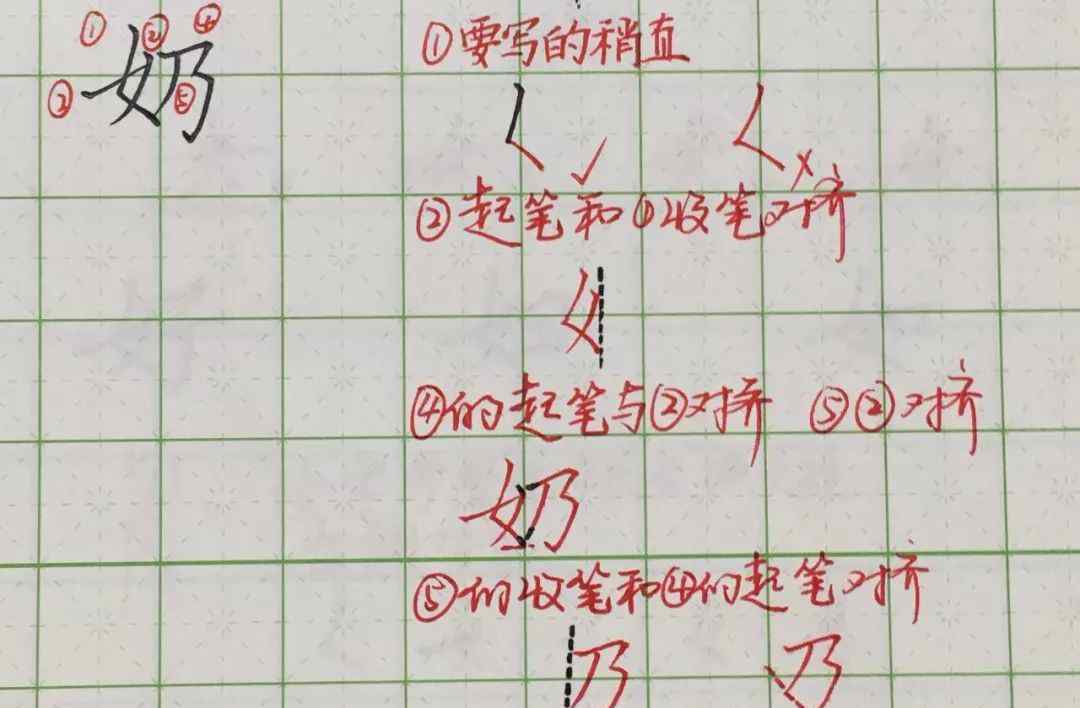 ① ② ④
① 要写的稍直
③ 奶 ⑤
く ✓ く ×
② 起笔和①收笔对齐
④的起笔与②对齐 ⑤②对齐
奶
⑤的收笔和④的起笔对齐
乃 乃